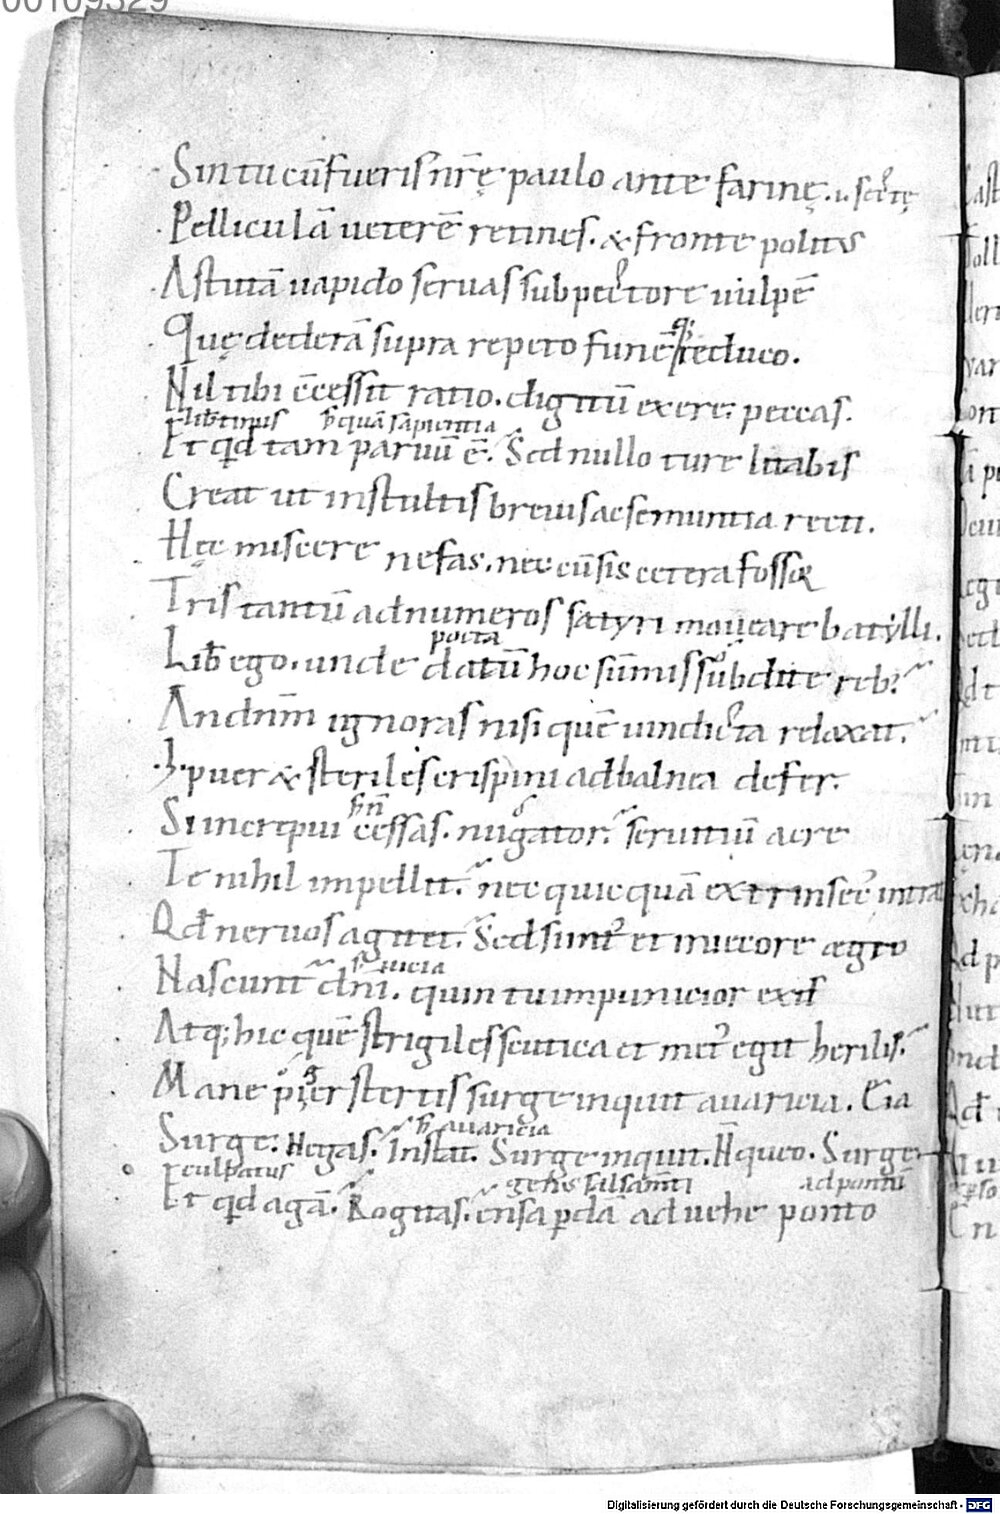 00109329
Sin tu cū fueris nr̄ę paulo ante farinę. .i. sectę
Pelliculā ueterē retines. & fronte politus
Astutā uapido seruas sub pectore uulpē
Quę dederā supra repeto funēq; reduco.
Nil tibi c̄cessit ratio. digitū exere; peccas.
libertinus
Et qd tam paruū ē. Sed nullo ture litabis
Ereat ut in stultis breuis ac semuntia recti.
Hęc miscere nefas. nec cū sis cetera fossor
Tris tantū ad numeros satyri moueare batylli.
poeta
Lib̄ ego. unde datū hoc sūmis subdite reb;
An dn̄m ignoras nisi quē uindicta relaxat.
I. puer & strigiles crispini ad balnea defer.
Si increpui cessas. nugator. seruitiū acre
Te nihil impellit. nec quicquā extrinsec' intrat
Qd neruos agitet. Sed si int' et in iecore ęgro
Nascunt' dn̄i. quin tu impunicior exis
Atq; hic quē strigiles scutica et met' egit herilis.
Mane piger stertis surge inquit auaricia. Eia
s. auaricia
Surge. Negas. Instat. Surge inquit. N̄ queo. Surge.
ad pontū
Et qd agā. Rogitas. en saperdā aduehe ponto
Digitalisierung gefördert durch die Deutsche Forschungsgemeinschaft - DFG